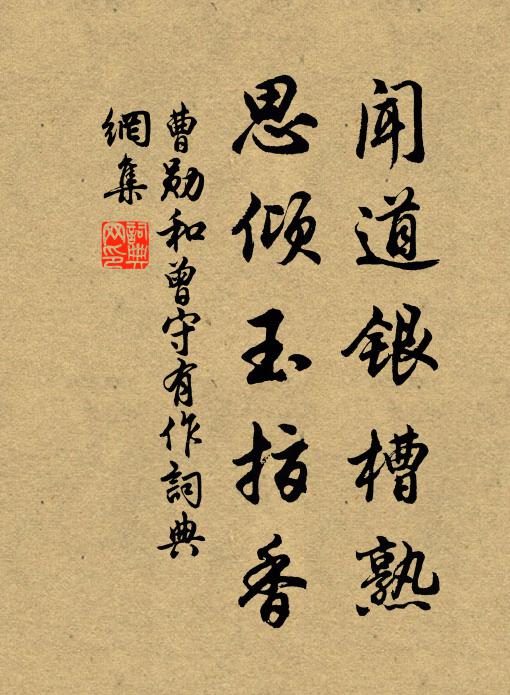 闻道银槽熟
思倾玉指香
曹勋和曾守有作詞典
網集
詞典
网印